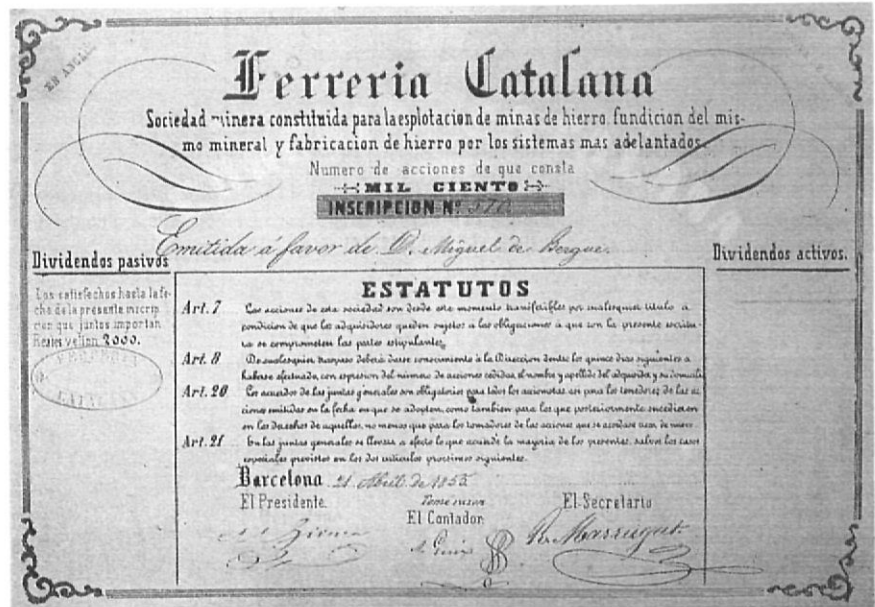 EN ANGLE
Ferreria Catalana
Sociedad minera constituida para la esplotacion de minas de hierro, fundicion del mis-
mo mineral y fabricacion de hierro por los sistemas mas adelantados.
Numero de acciones de que consta
MIL CIENTO
INSCRIPCION Nº
Emitida á favor de D. Miguel de Bergue.
Dividendos pasivos
Los satisfechos hasta la fe-
cha de la presente inscrip
cion que juntos importan
Reales vellon 2000.
FERRERIA
CATALANA
Dividendos activos.
ESTATUTOS
Art. 7 Las acciones de esta sociedad son desde este momento transferibles por cualesquier titulo a
condicion de que los adquisidores queden sujetos a las obligaciones á que con la presente escritu-
ra se comprometen las partes estipulantes.
Art. 8 De cualesquier traspaso deberá darse conocimiento á la Direccion dentro los quince dias siguientes a
haberse efectuado, con espresion del número de acciones cedidas, el nombre y apellido del adquisidor y su domicilio
Art. 20 Los acuerdos de las juntas generales son obligatorios para todos los accionistas, asi para los tenedores de las ac
ciones emitidas en la fecha en que se adopten, como tambien para los que posteriormente sucedieren
en los derechos de aquellos, no menos que para los tomadores de las acciones que se acordase crear de nuevo.
Art. 21 En las juntas generales se llevará a efecto lo que acuerde la mayoria de los presentes, salvos los casos
especiales previstos en los dos articulos procsimos siguientes.
Barcelona 21 Abril de 1855
El Presidente.
El Contador.
El Secretario